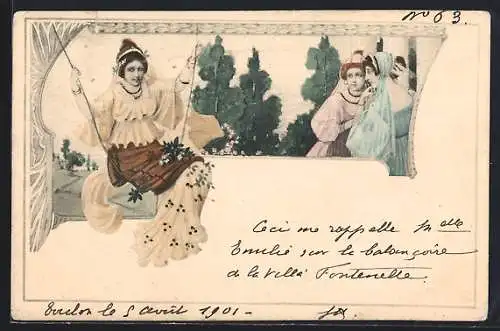 No 63.
Ceci me rappelle Melle
Emilie sur la balançoire
de la Villa Fontenelle.
Toulon le 5 août 1901 -